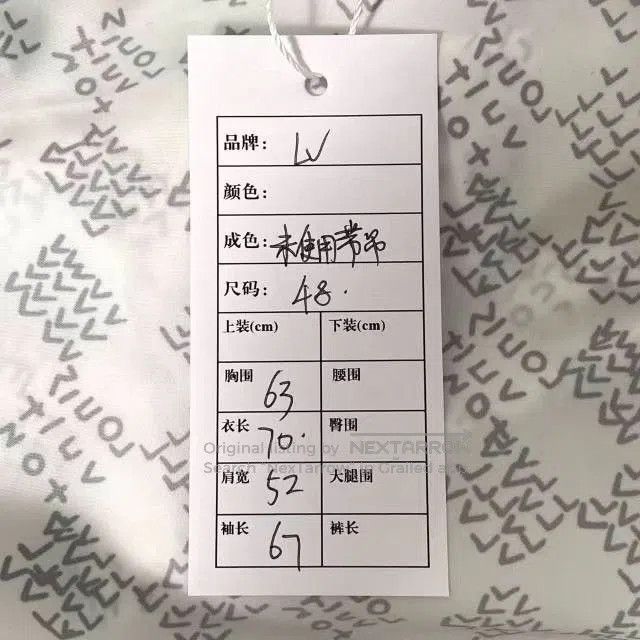 品牌: LV
颜色:
成色: 未使用带吊
尺码: 48.
上装(cm) 下装(cm)
胸围 63 腰围
衣长 70. 臀围
Original listing by NEXTARROW
肩宽 52 大腿围
袖长 67 裤长